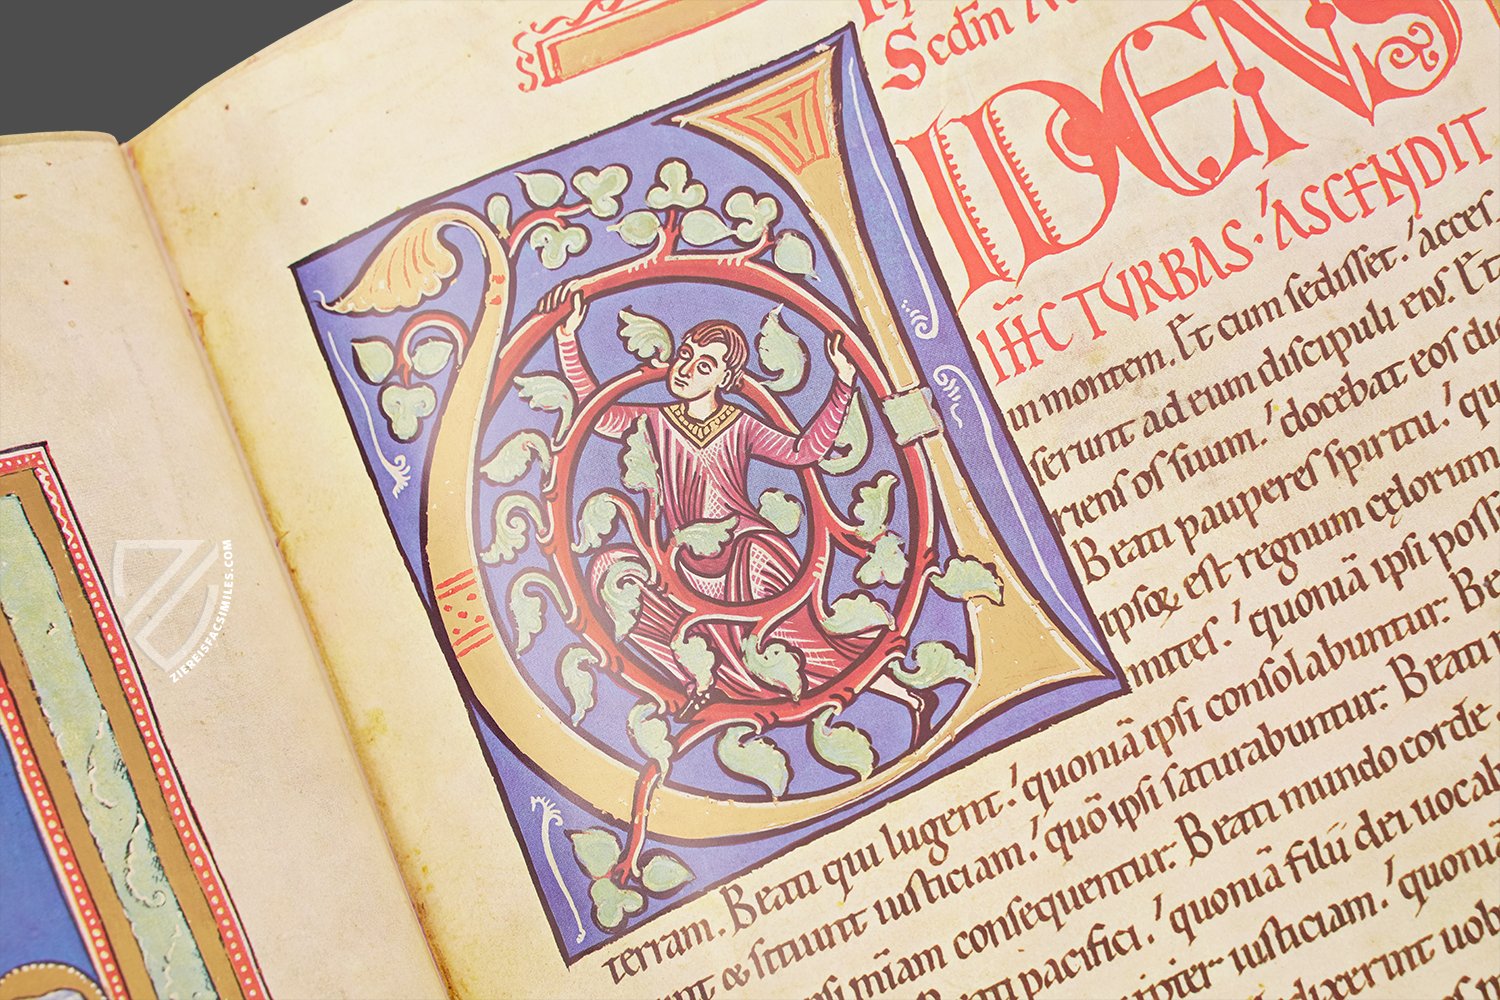 Scdm
VIDENS
IH̅C TURBAS · ASCENDIT
in montem. Et cum sedisset. acces
serunt ad eum discipuli eius. Et
riens os suum. docebat eos dic
Beati pauperes spiritu. qu
ipsoꝝ est regnum cęlorum
mites. quoniā ipsi possi
terram. Beati qui lugent. quoniā ipsi consolabuntur. Be
unt & sitiunt iusticiam. quō ipsi saturabuntur. Beati
ipsi mīam consequentur. Beati mundo corde
Beati pacifici. quoniā filii dei uocab
propter iusticiam. quoniā
dixerunt uob
ZIEREISFACSIMILES.COM